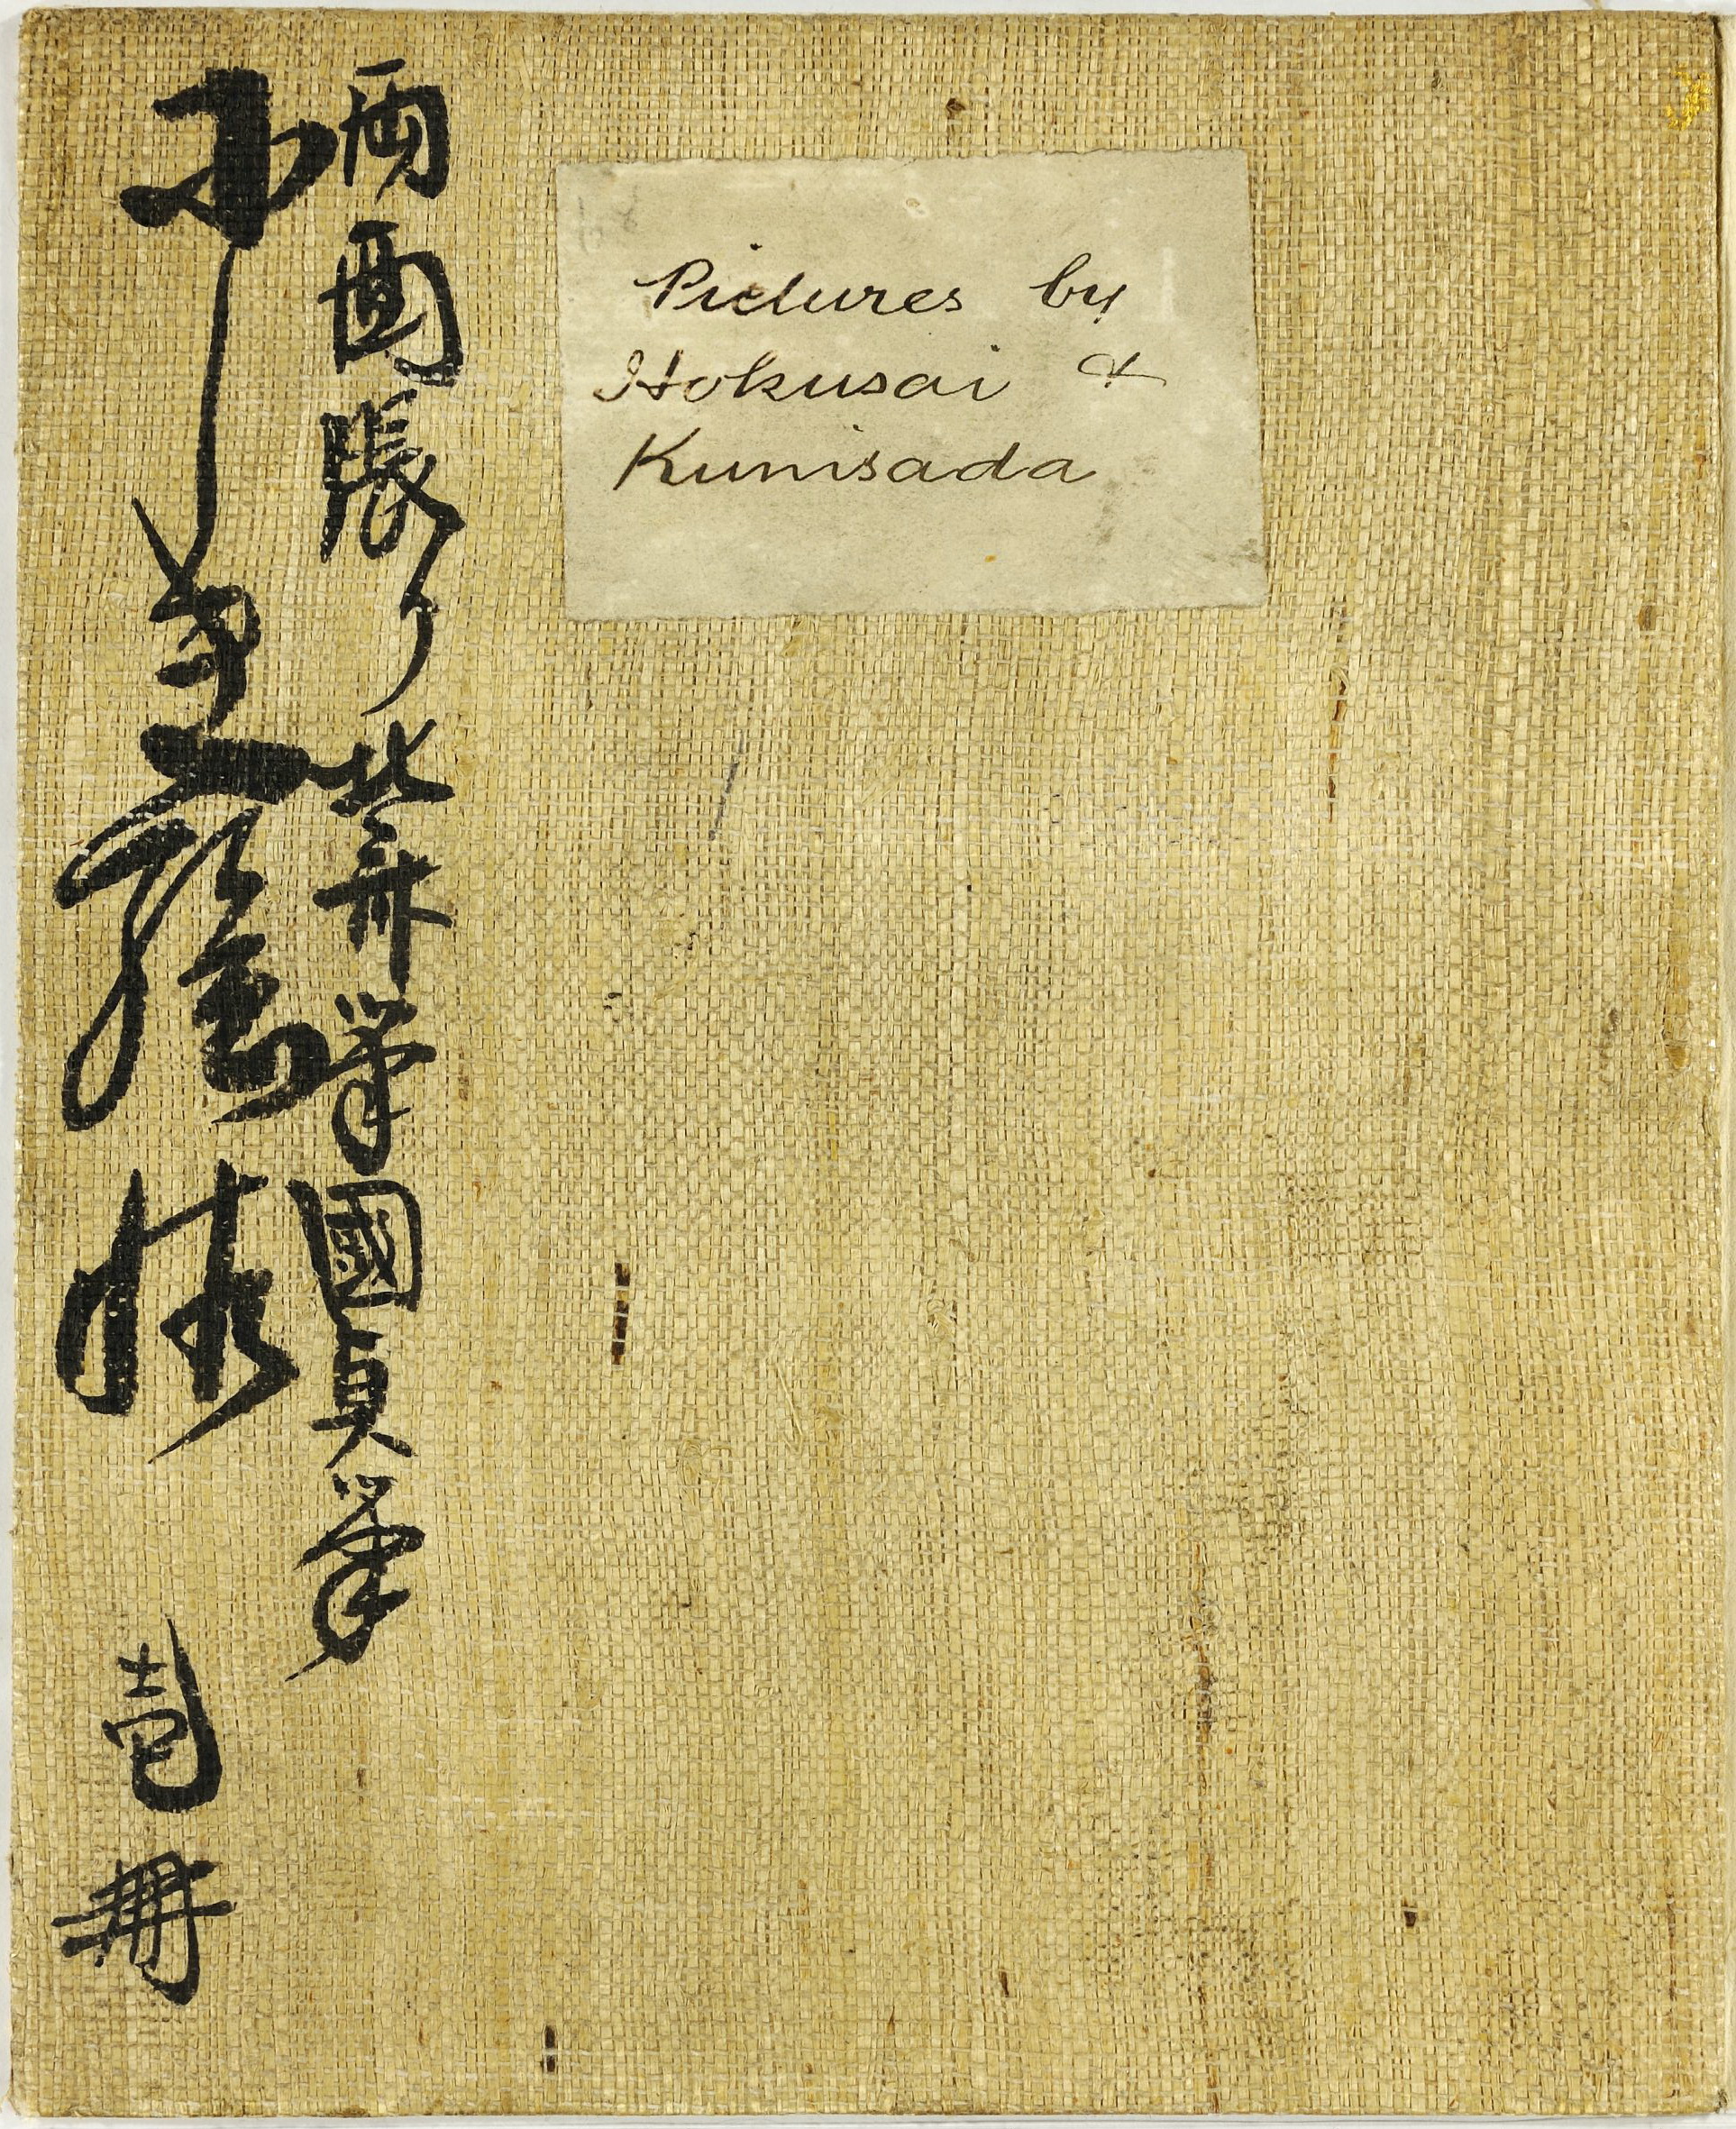 Pictures by
Hokusai &
Kunisada
両面張り北斎筆國貞筆
壹冊